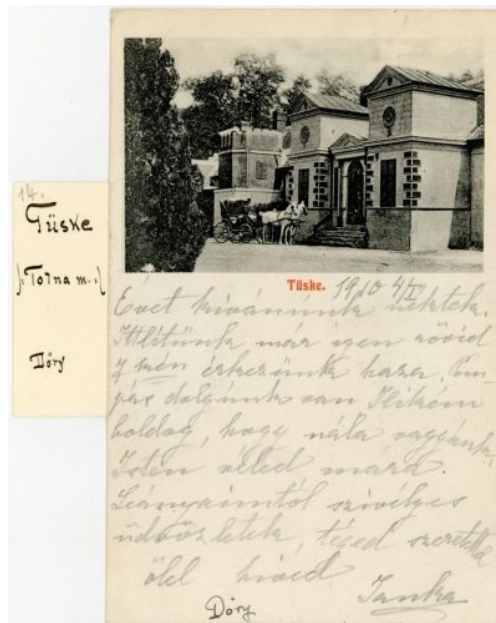 14.
Tüske
(Tolna m.)
Dőry
Tüske.
1910 4/I
Évet kívánunk nektek.
Ittlétünk már igen rövid
7 kén érkezünk haza.
dolgunk van Ilikém
boldog, hogy nála vagyunk.
Isten véled mára.
Leányaimtól szívélyes
üdvözletek, téged szeretettel
ölel híved
Janka
Dőry